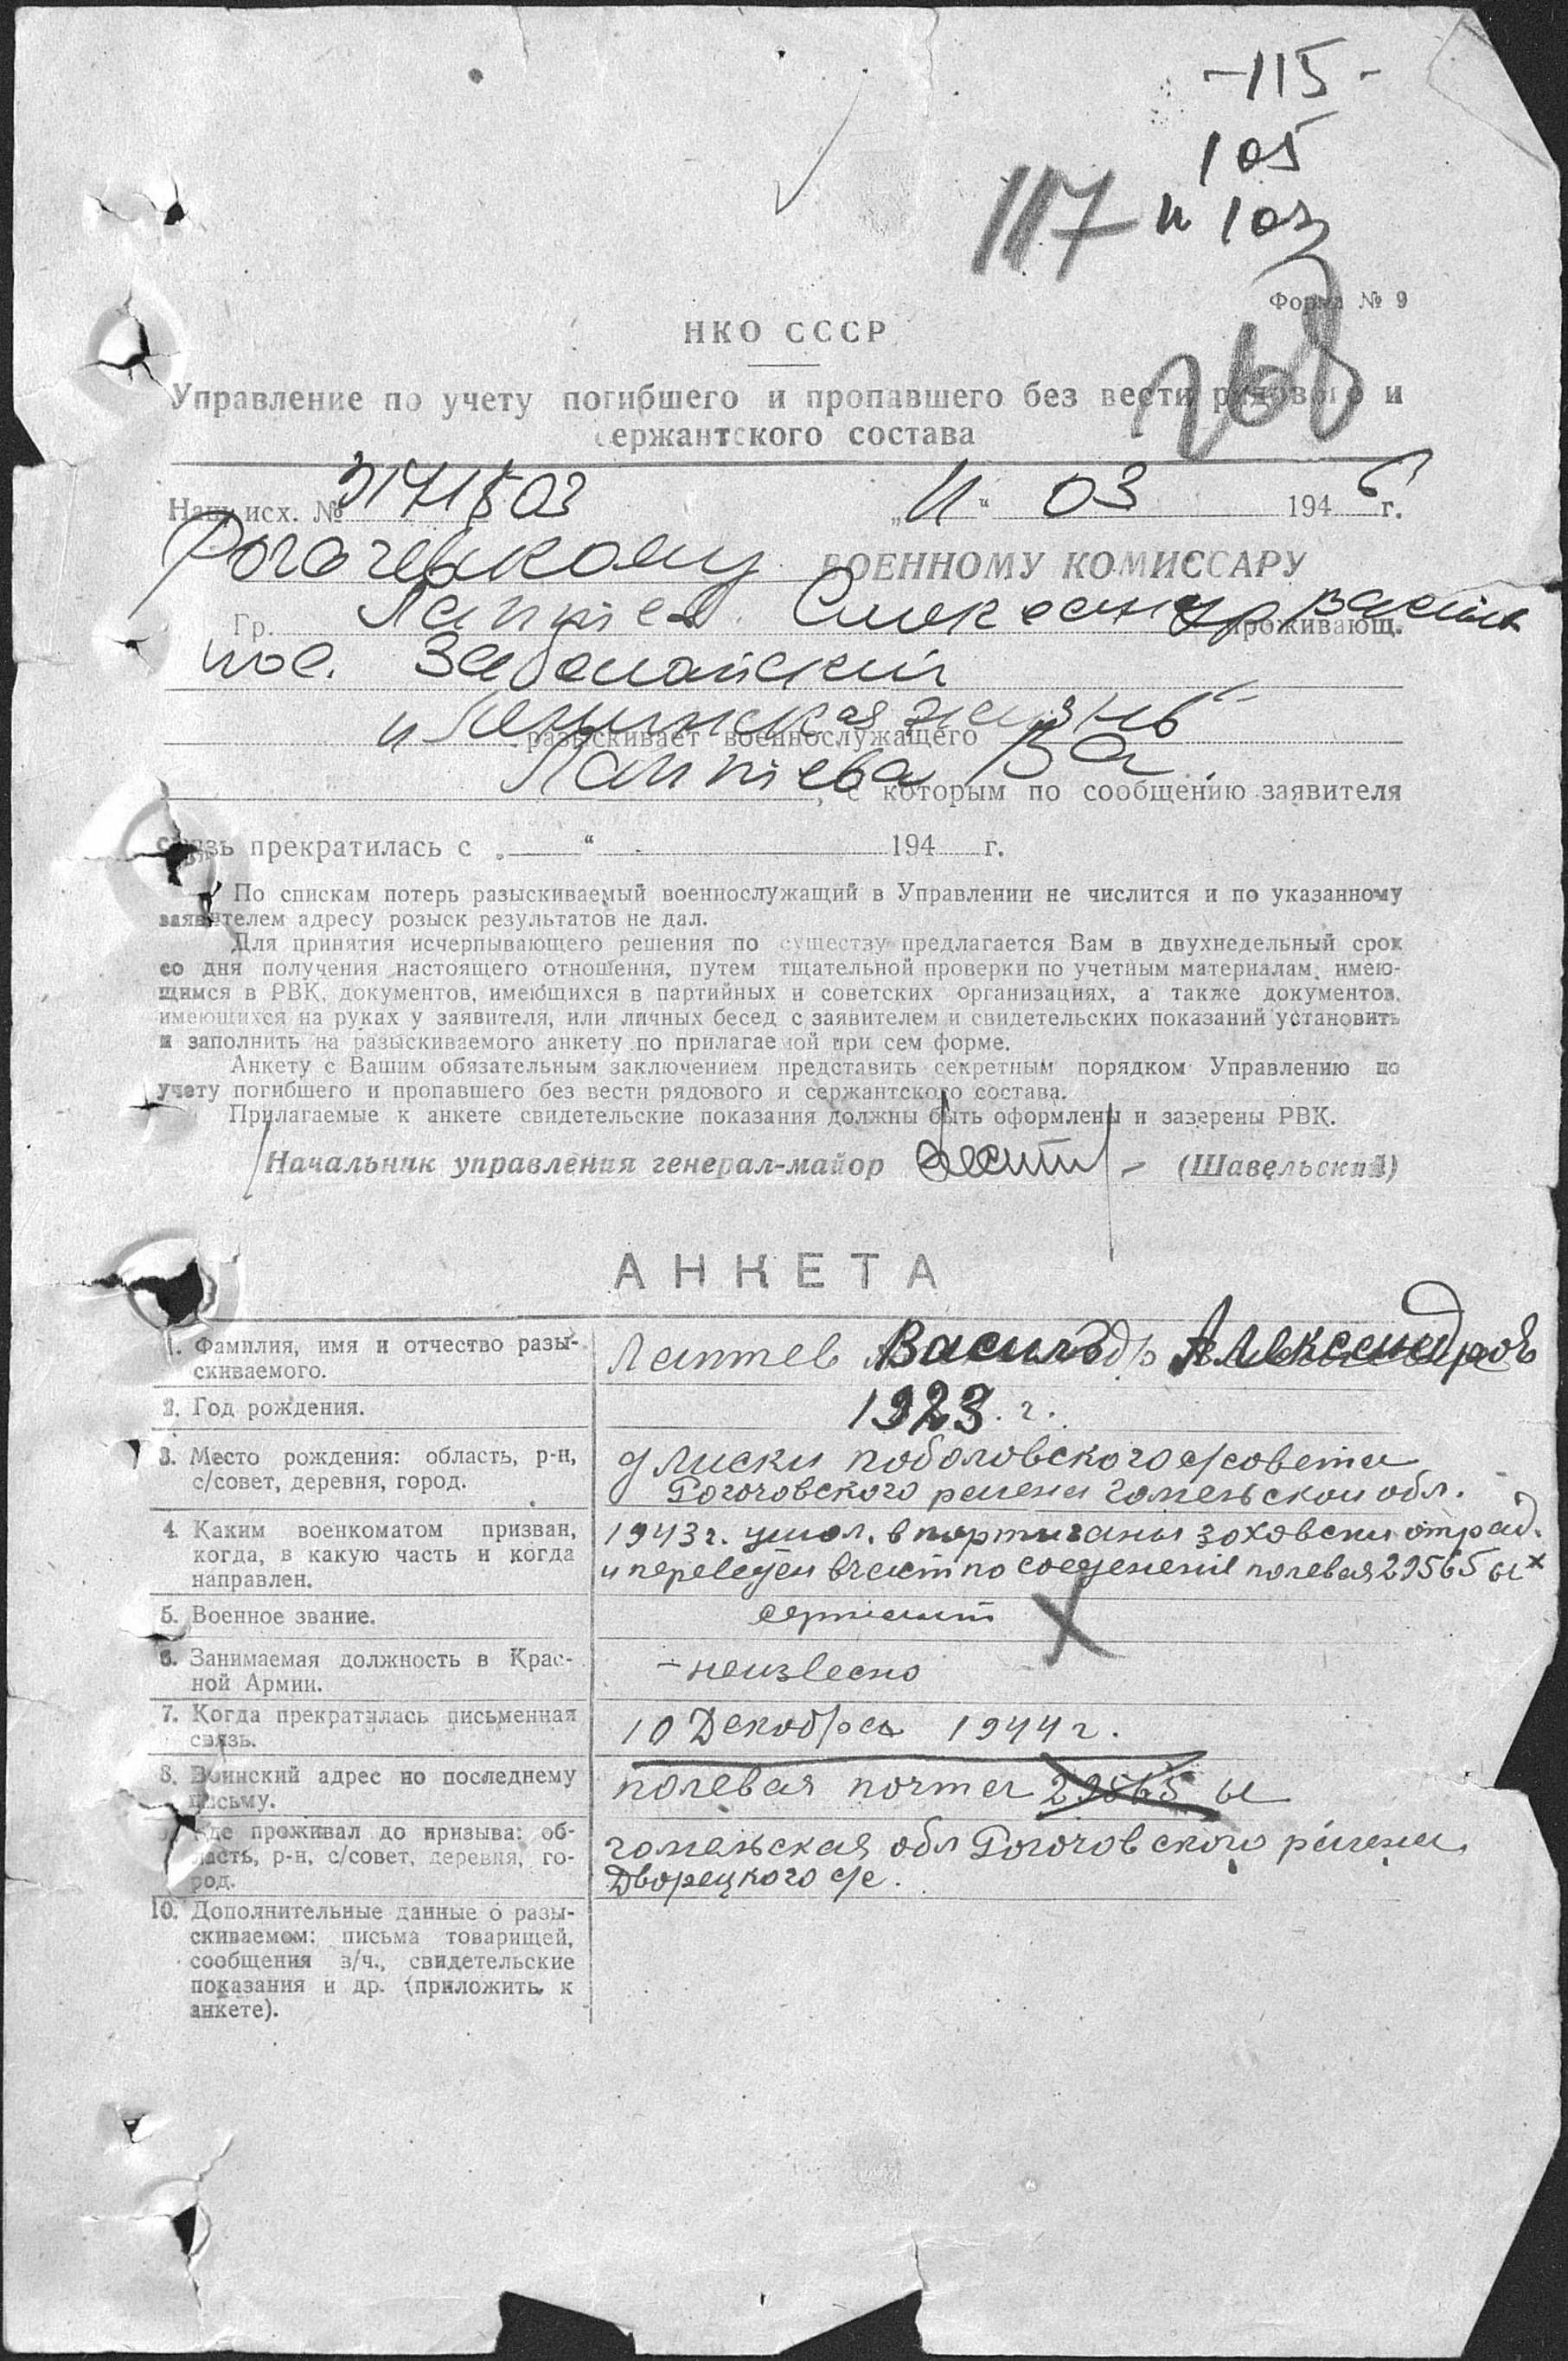 -115-
105
117 и 103
Форма № 9
НКО СССР
268
Управление по учету погибшего и пропавшего без вести рядового и
сержантского состава
Наш исх. №
„11“ 03 1946 г.
Рогачевскому ВОЕННОМУ КОМИССАРУ
Гр. Лаптев проживающ.
пос.
разыскивает военнослужащего
Лаптева ВА, с которым по сообщению заявителя
связь прекратилась с „ “ 194 г.
По спискам потерь разыскиваемый военнослужащий в Управлении не числится и по указанному
заявителем адресу розыск результатов не дал.
Для принятия исчерпывающего решения по существу предлагается Вам в двухнедельный срок
со дня получения настоящего отношения, путем тщательной проверки по учетным материалам, имею-
щимся в РВК, документов, имеющихся в партийных и советских организациях, а также документов,
имеющихся на руках у заявителя, или личных бесед с заявителем и свидетельских показаний установить
и заполнить на разыскиваемого анкету по прилагаемой при сем форме.
Анкету с Вашим обязательным заключением представить секретным порядком Управлению по
учету погибшего и пропавшего без вести рядового и сержантского состава.
Прилагаемые к анкете свидетельские показания должны быть оформлены и заверены РВК.
Начальник управления генерал-майор (Шавельский)
АНКЕТА
1. Фамилия, имя и отчество разы-
скиваемого.
Лаптев Василь Александров
2. Год рождения.
1923 г.
3. Место рождения: область, р-н,
с/совет, деревня, город.
д Лиски поболовского с/совета
Рогочовского раена гомельскои обл.
4. Каким военкоматом призван,
когда, в какую часть и когда
направлен.
1943 г. ушол. в портизаны отрад.
и переведен в част по соеденение полевая 29565 ы
5. Военное звание.
сержант
6. Занимаемая должность в Крас-
ной Армии.
- неизвесно
7. Когда прекратилась письменная
связь.
10 Декобря 1944 г.
8. Воинский адрес по последнему
письму.
полевая почта 29565 ы
9. Где проживал до призыва: об-
ласть, р-н, с/совет, деревня, го-
род.
гомельская обл Рогочовского раена
Дворецкого с/с.
10. Дополнительные данные о разы-
скиваемом: письма товарищей,
сообщения в/ч., свидетельские
показания и др. (приложить к
анкете).